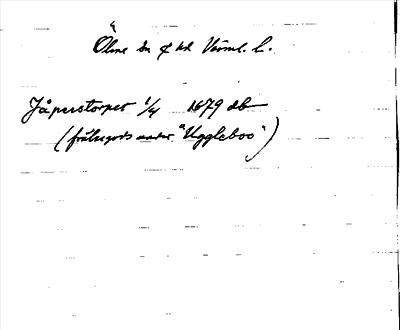 Ölme sn & hd Värml. l.
Jåperstorpet 1/4 1679 db
(frälsegods under "Uggleboo")